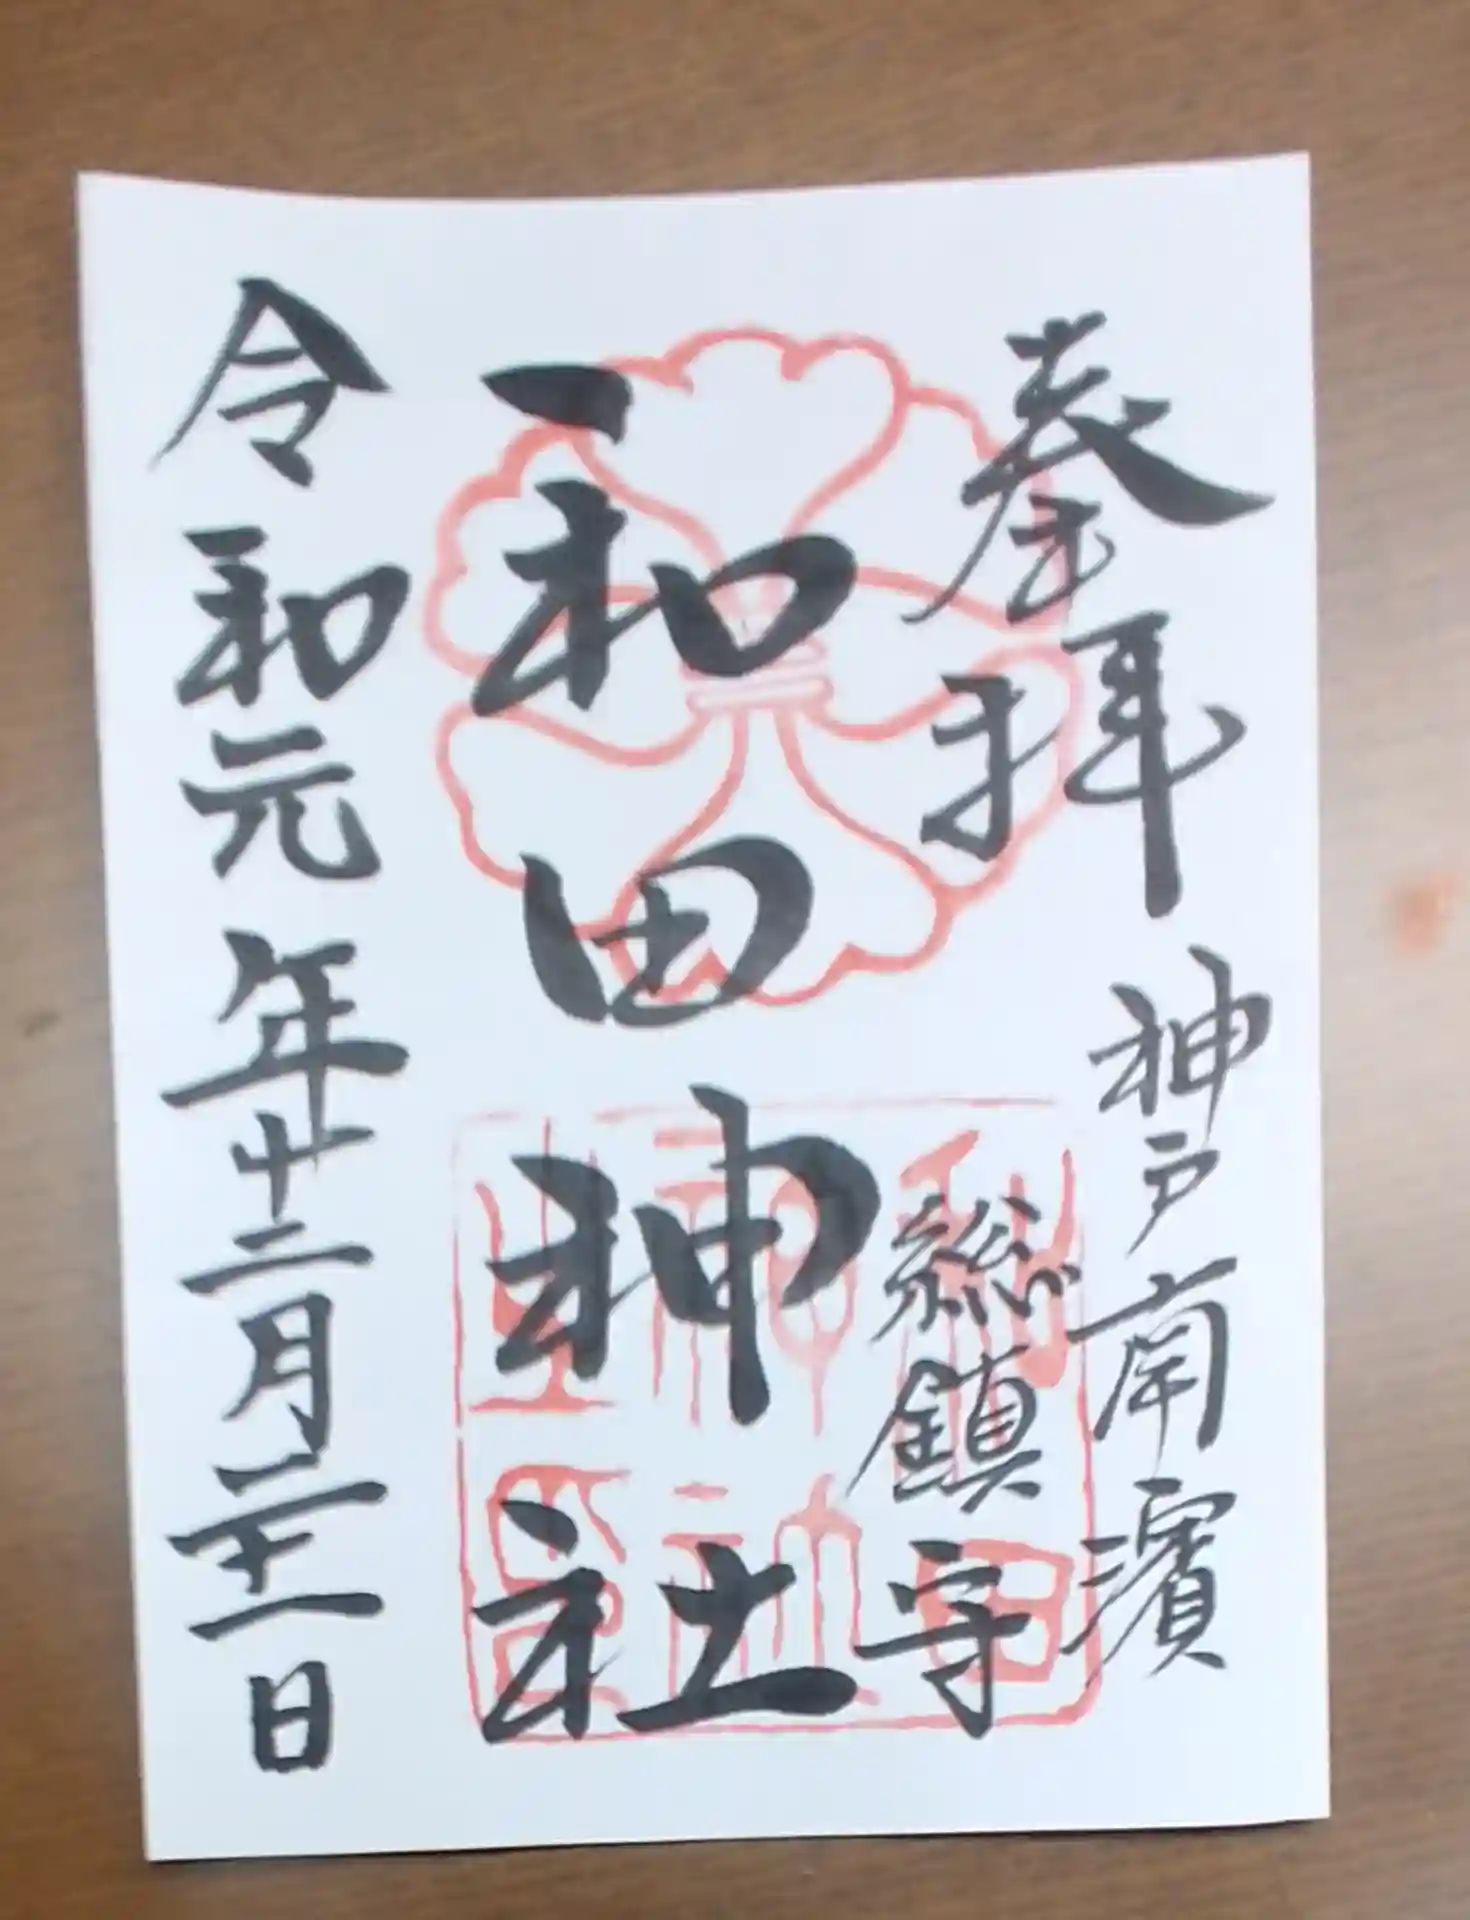 奉拝
神戸南濱
総鎮守
和田神社
令和元年十二月二十一日
和田
神社
之印